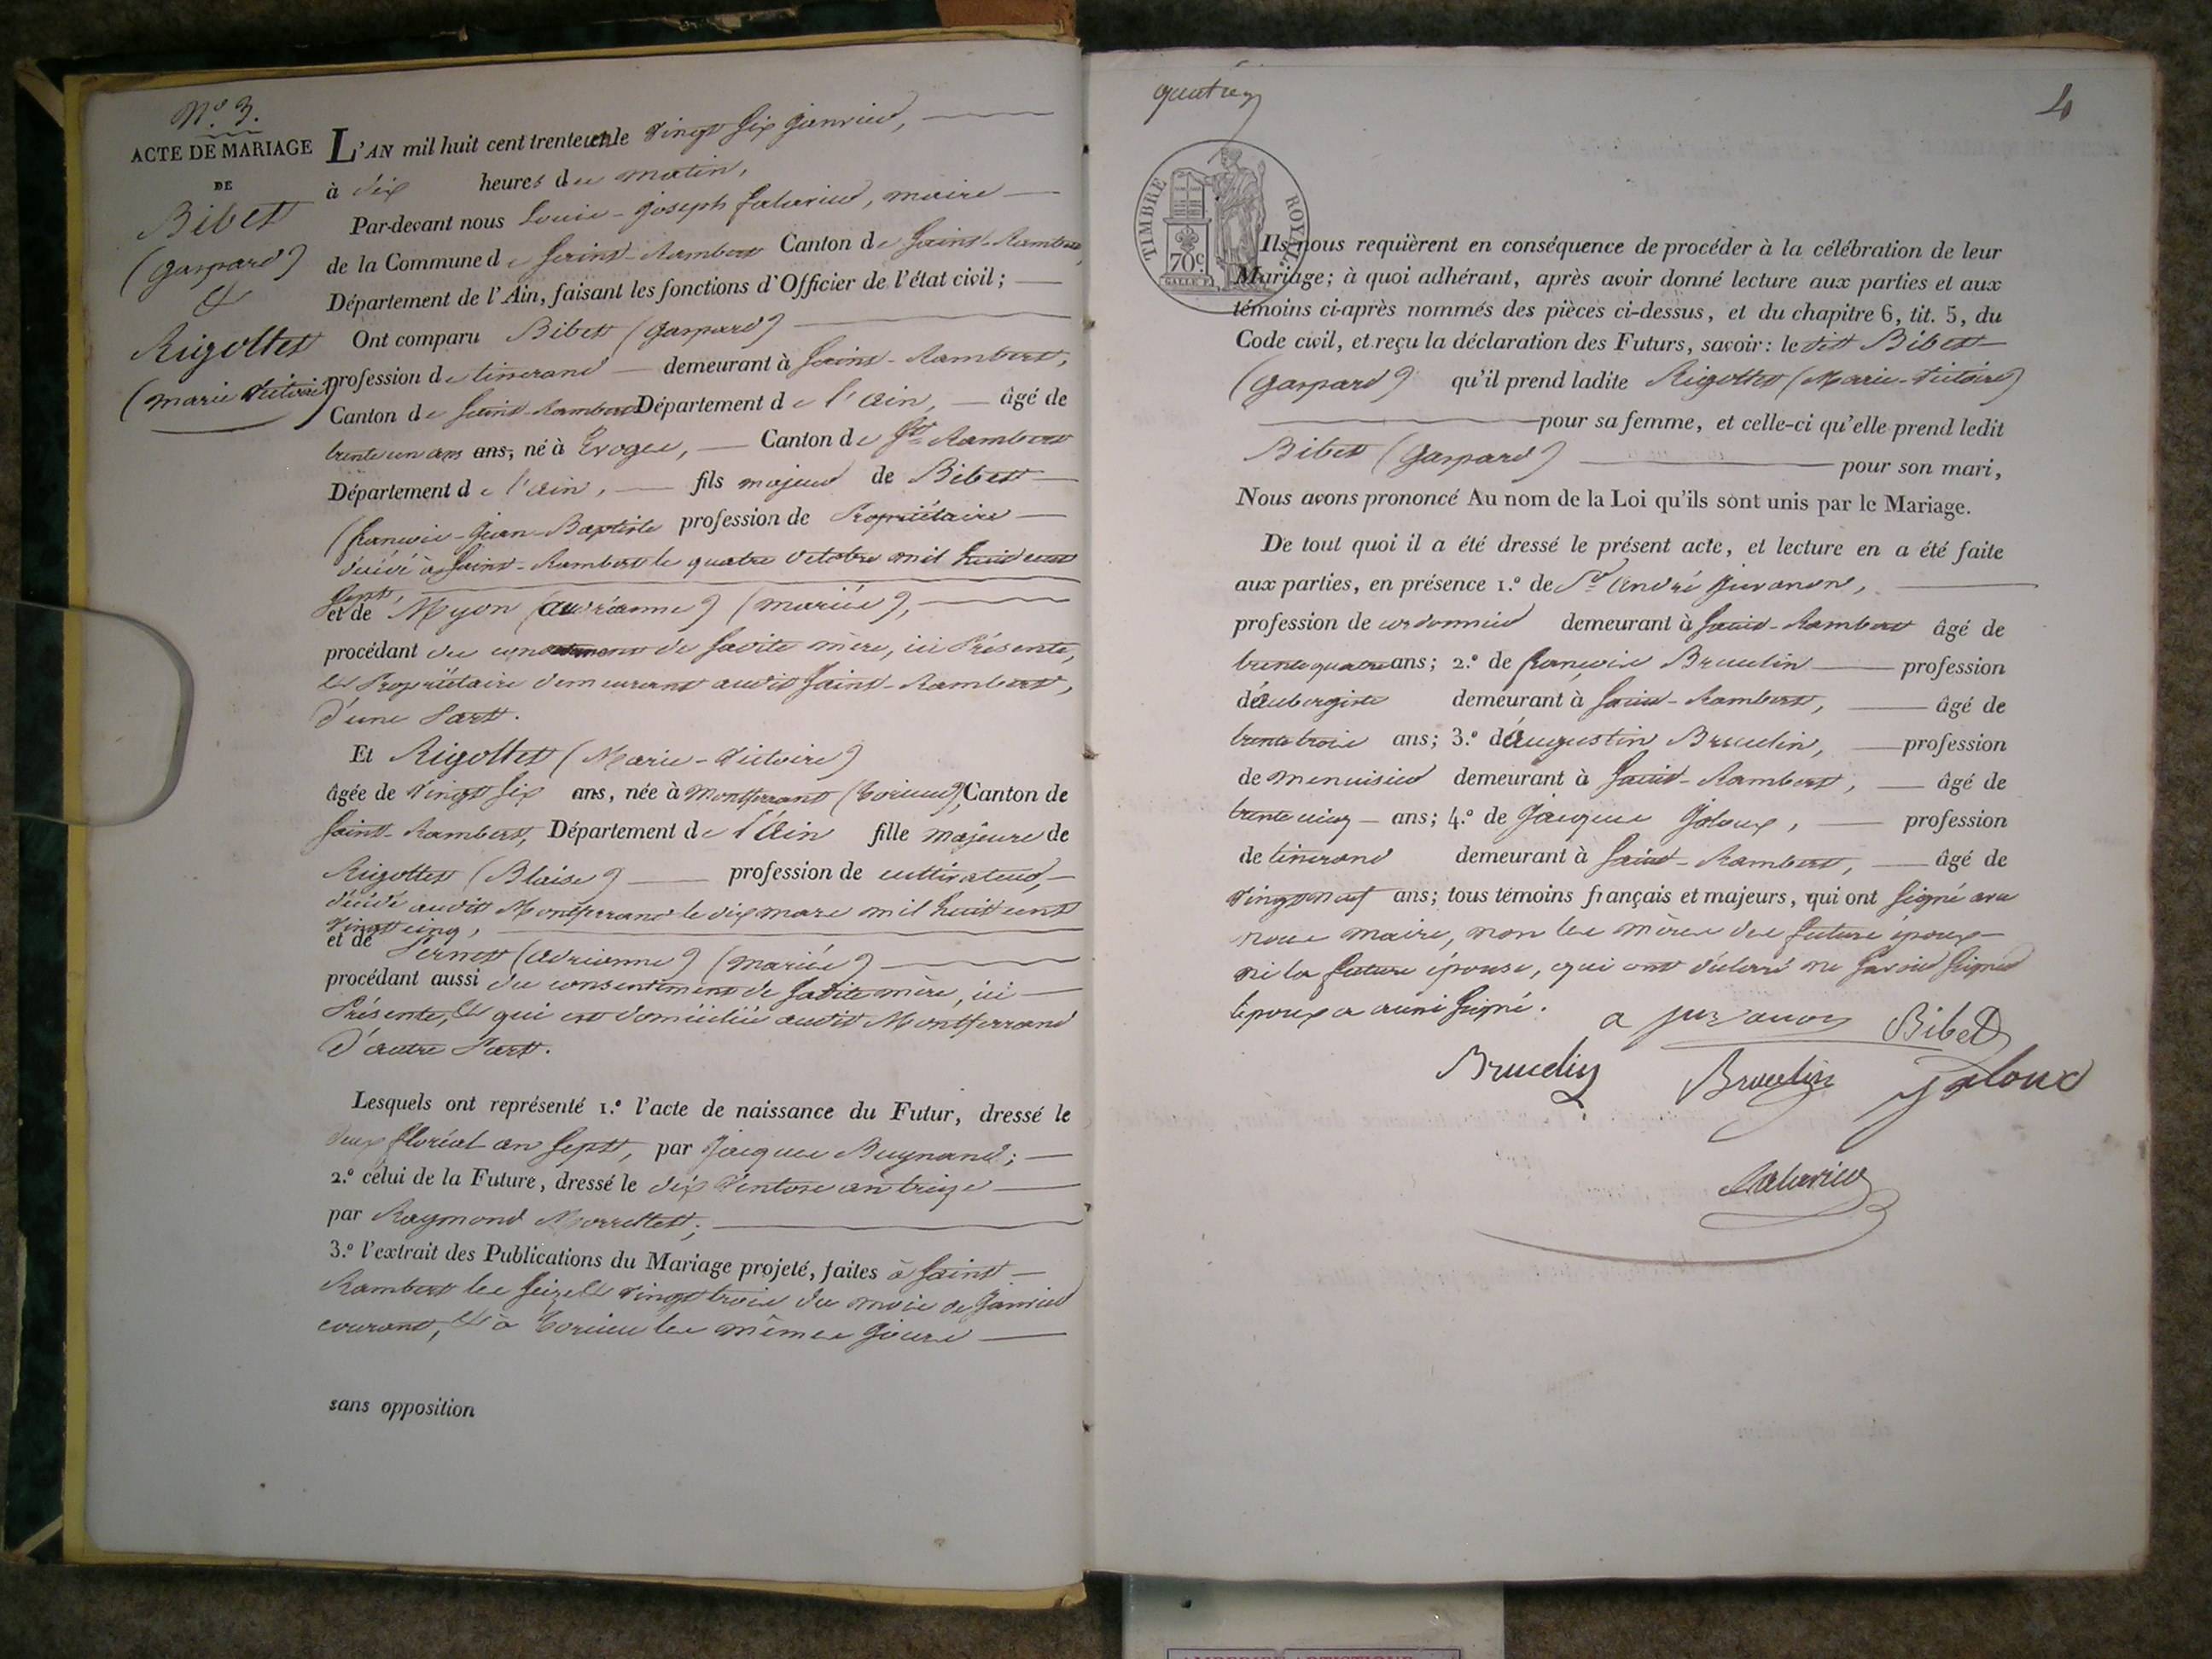 N.º 3.
ACTE DE MARIAGE
DE
Bibet
(Gaspard)
&
Rigottet
(Marie Victoire)
L'AN mil huit cent trente un le vingt six Janvier,
à dix heures du matin,
Par-devant nous Louis-Joseph Falavier, maire
de la Commune de Saint-Rambert Canton de Saint-Rambert,
Département de l'Ain, faisant les fonctions d'Officier de l'état civil;
Ont comparu Bibet (Gaspard)
profession de tisserand demeurant à Saint-Rambert,
Canton de Saint-Rambert Département de l'Ain, âgé de
trente un ans ans, né à Evoges, Canton de St Rambert
Département de l'Ain, fils majeur de Bibet
(François-Jean-Baptiste profession de Propriétaire
décédé à Saint-Rambert le quatre Octobre mil huit cent
sept,
et de Myon (Andréanne) (mariée),
procédant du consentement de sadite mère, ici Présente,
et Propriétaire demeurant audit Saint-Rambert,
d'une Part.
Et Rigottet (Marie-Victoire)
âgée de vingt six ans, née à Montferrand (Torcieu), Canton de
Saint-Rambert, Département de l'Ain fille majeure de
Rigottet (Blaise) profession de cultivateur,
décédé audit Montferrand le dix mars mil huit cent
vingt cinq,
et de Pernet (Adrianne) (mariée)
procédant aussi du consentement de sadite mère, ici
Présente, et qui est domiciliée audit Montferrand
d'autre Part.
Lesquels ont représenté 1.º l'acte de naissance du Futur, dressé le
deux floréal an sept, par Jacques Buynand;
2.º celui de la Future, dressé le dix Ventose an treize
par Raymond Morrettet;
3.º l'extrait des Publications du Mariage projeté, faites à Saint-
Rambert les seize et vingt trois du mois de Janvier
courant, et à Torcieu les mêmes jours
sans opposition
quatre
4
TIMBRE ROYAL
70 c.
Ils nous requièrent en conséquence de procéder à la célébration de leur
Mariage; à quoi adhérant, après avoir donné lecture aux parties et aux
témoins ci-après nommés des pièces ci-dessus, et du chapitre 6, tit. 5, du
Code civil, et reçu la déclaration des Futurs, savoir: ledit Bibet
(Gaspard) qu'il prend ladite Rigottet (Marie-Victoire)
pour sa femme, et celle-ci qu'elle prend ledit
Bibet (Gaspard) pour son mari,
Nous avons prononcé Au nom de la Loi qu'ils sont unis par le Mariage.
De tout quoi il a été dressé le présent acte, et lecture en a été faite
aux parties, en présence 1.º de Sr André Juvanon,
profession de cordonnier demeurant à Saint-Rambert âgé de
trente quatre ans; 2.º de François Brucelin profession
d'aubergiste demeurant à Saint-Rambert, âgé de
trente trois ans; 3.º d'Augustin Brucelin, profession
de menuisier demeurant à Saint-Rambert, âgé de
trente cinq ans; 4.º de Jacques Joloux, profession
de tisserand demeurant à Saint-Rambert, âgé de
vingt neuf ans; tous témoins français et majeurs, qui ont signé avec
nous maire, non les mères des future époux
ni la future épouse, qui ont déclaré ne savoir signer
l'époux a aussi signé.
a juvanon Bibet
Brucelin Brucelin Joloux
Falavier